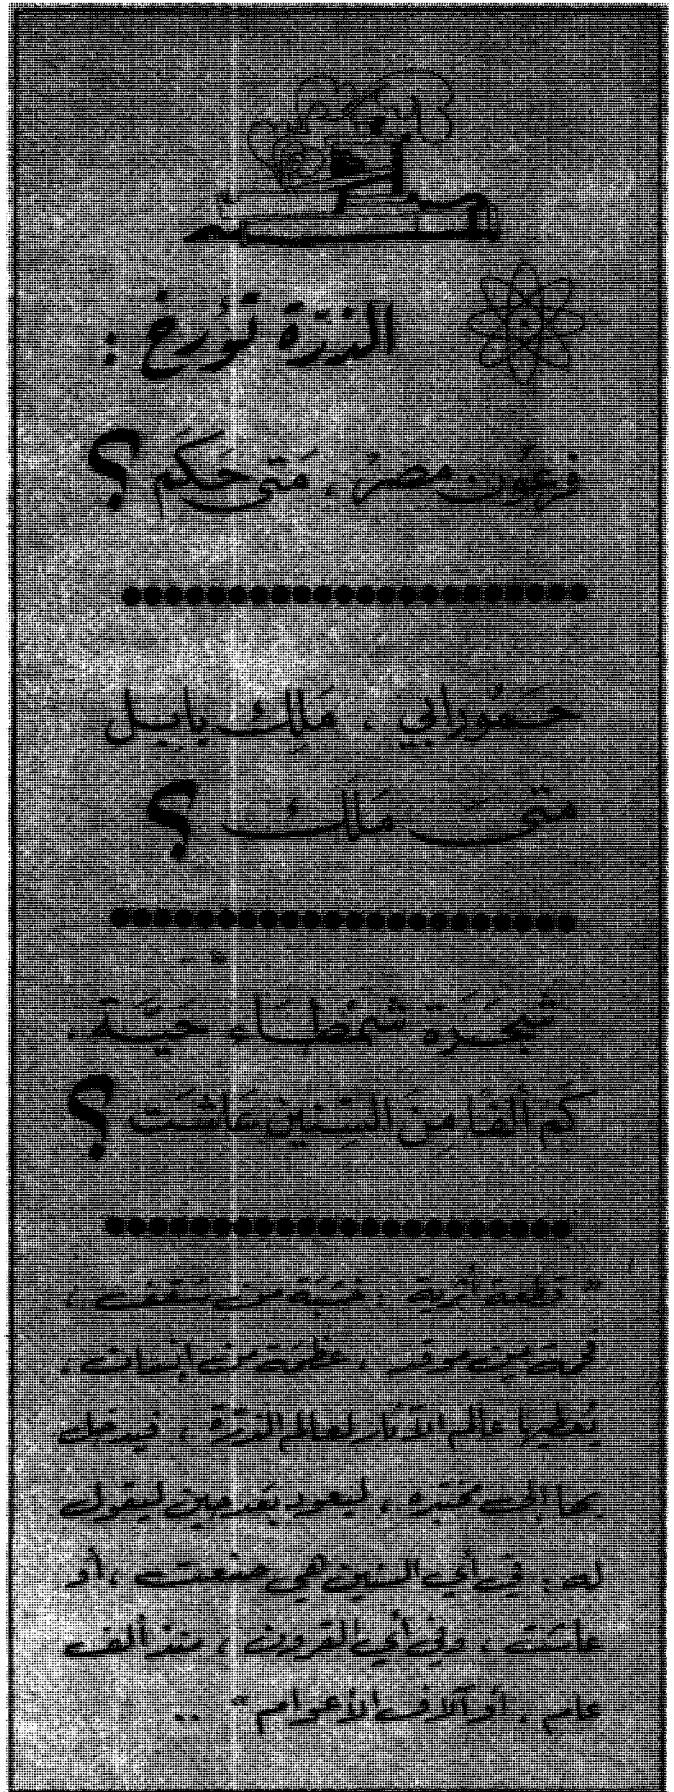 الذرّة تؤرخ :
فرعون مصر ، متى حكم ؟
حمورابي ، ملك بابل
متى ملك ؟
شجرة شمطاء حيّة ،
كم ألفا من السنين عاشت ؟
" قطعة أثرية ، خشبة من سقف ،
فحمة من موقد ، عظمة من إنسان ،
يعطيها عالم الآثار لعالم الذرّة ، فيدخل
بها إلى مختبره ، ليعود بعد حين ليقول
له : في أي السنين هي صنعت ، أو
عاشت ، وفي أي القرون ، منذ ألف
عام ، أو آلاف الأعوام " ..